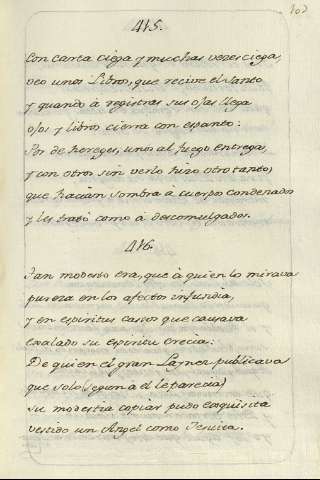 107
415.
Con carta ciega y muchas vezes ciega,
veo unos Libros, que recive el Santo
y quando à registrar sus ojas llega
ojos y libros cierra con espanto:
Por de hereges, unos al fuego entrega,
y con otros sin verlo hizo otro tanto,
que hacian sombra à cuerpo condenado
y les trató como à descomulgados.
416.
Tan modesto era, que à quien lo mirava
pureza en los afectos infundia,
y en espiritus castos que causava
exalado su espiritu crecia:
De quien el gran Laynez publicava
que solo (segun à el le parecia)
su modestia copiar pudo exquisita
vestido un Angel como Jesuita.